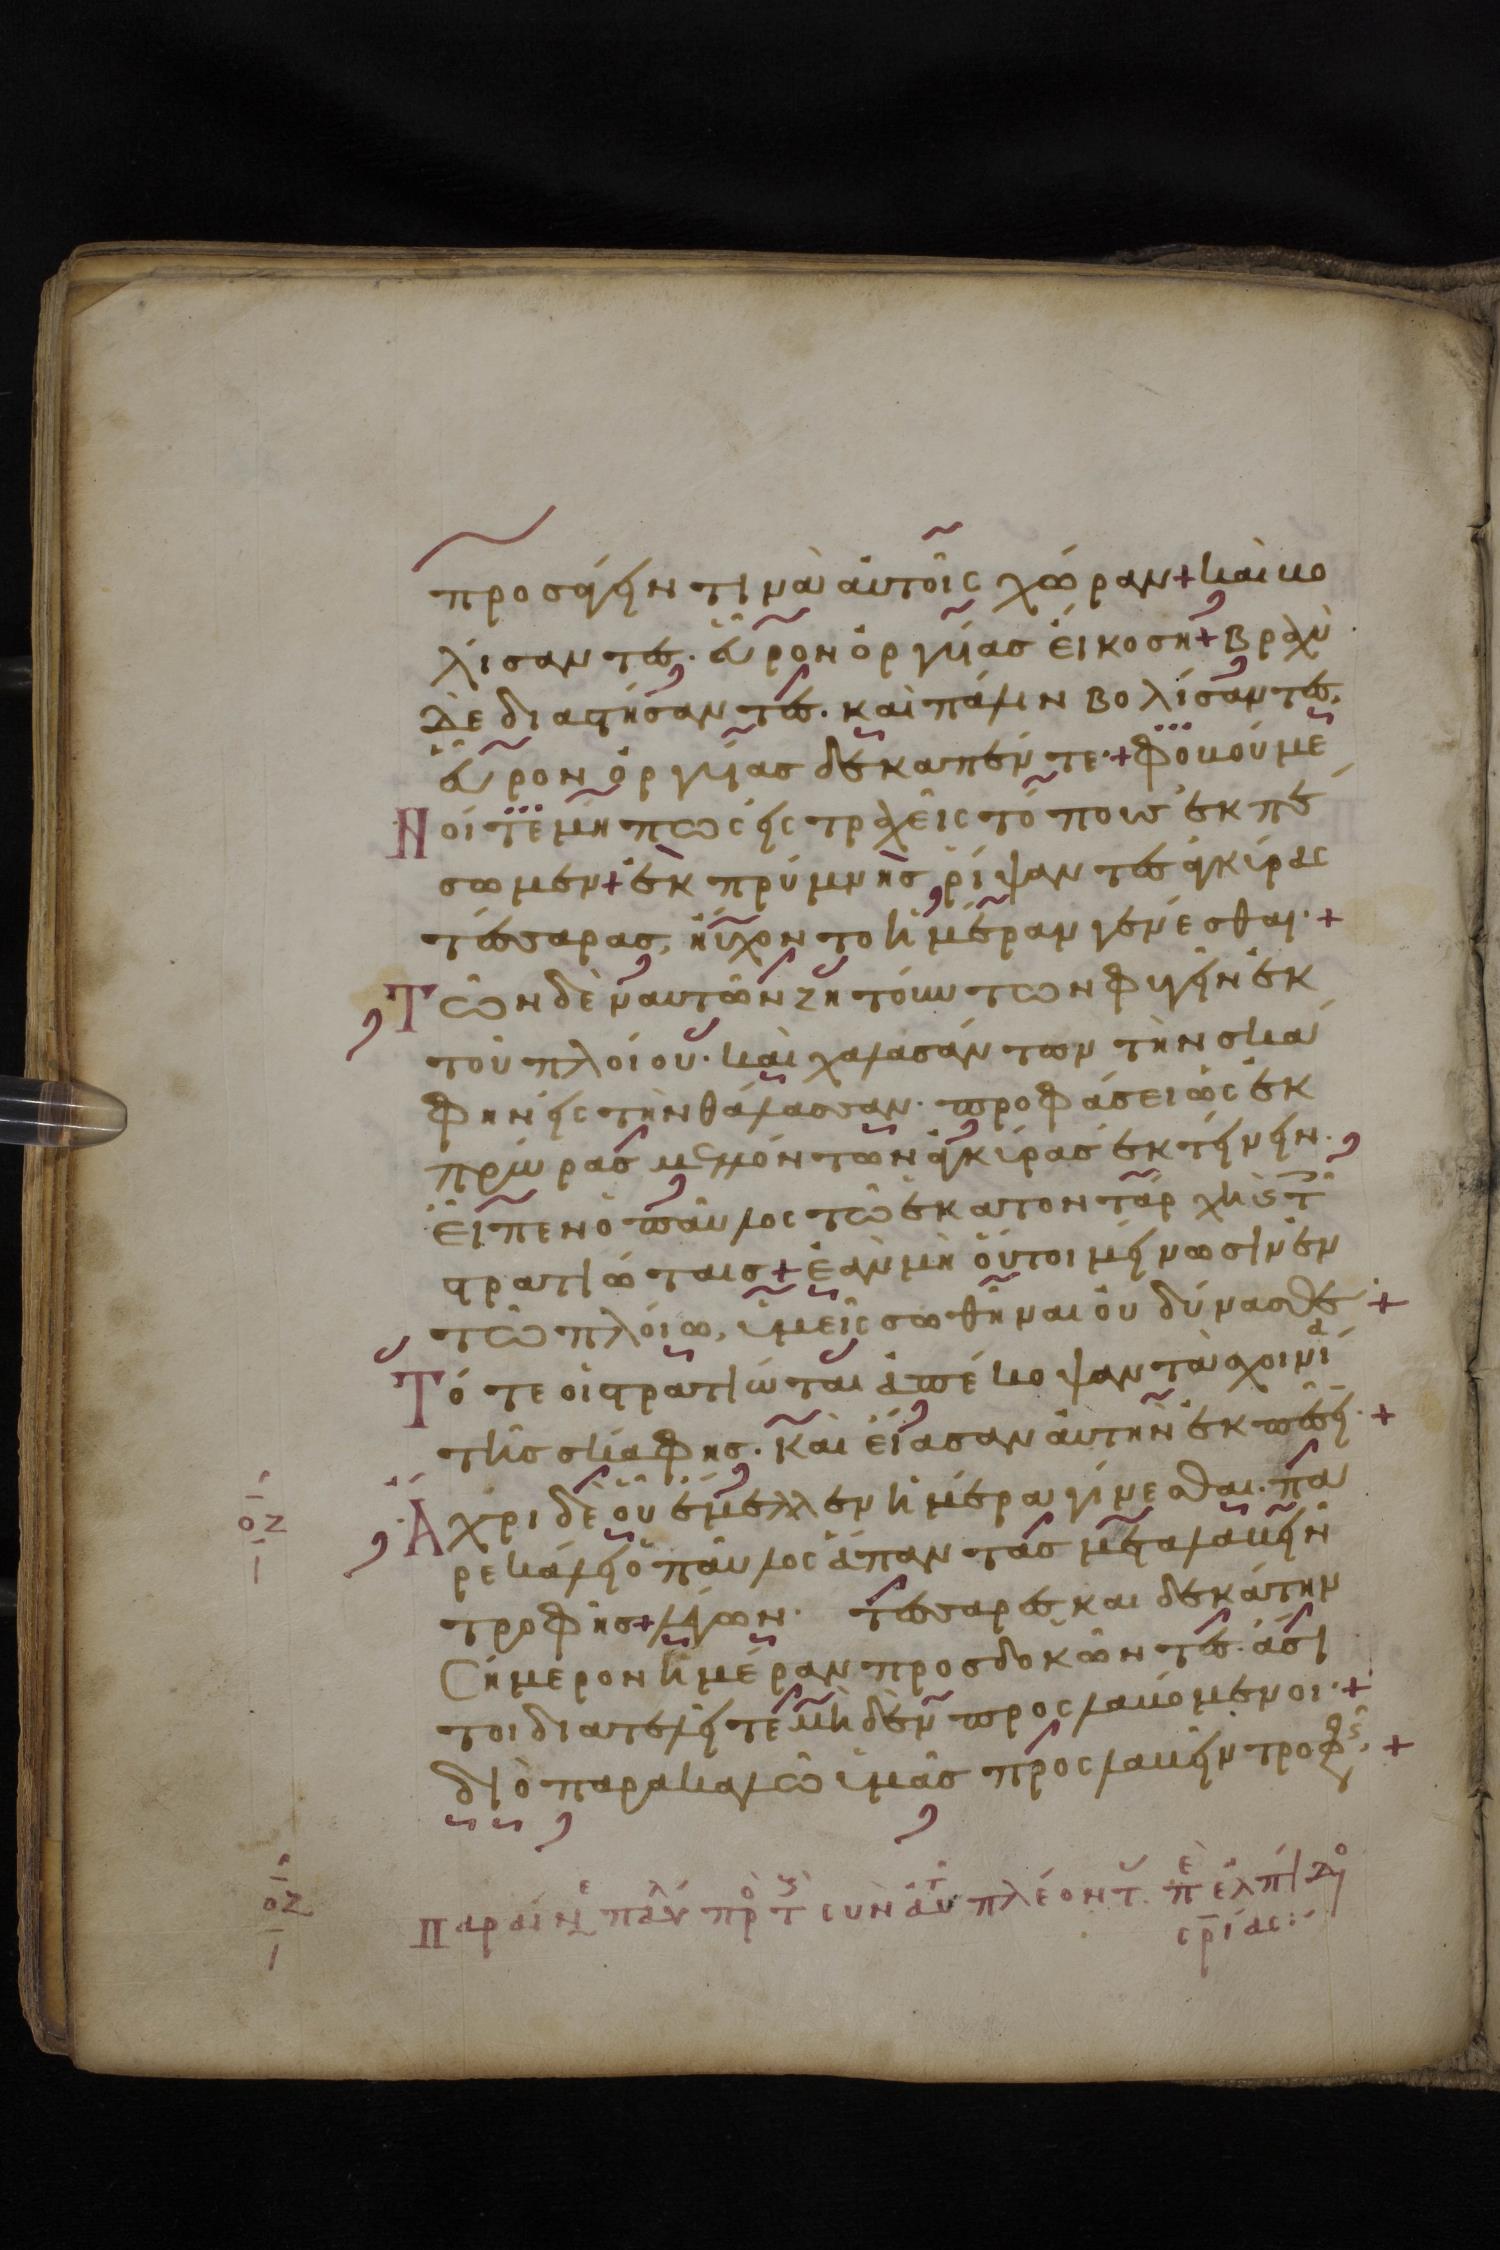 προσάγειν τινὰ αὐτοῖς χώραν + καὶ βο
λίσαντες· εὗρον ὀργυίας εἴκοση + βραχὺ
δὲ διαστήσαντες. καὶ πάλην βολίσαντες,
εὗρον ὀργυίας δεκαπέντε· + φοβούμε
νοί τε μή πως εἰς τραχεῖς τόπους ἐκπέ
σωμεν + ἐκ πρύμνης ῥίψαντες ἀγκύρας
τέσσαρας, ηὔχοντο ἡμέραν γενέσθαι· +
Τῶν δὲ ναυτῶν ζητούντων φυγεῖν ἐκ
τοῦ πλοίου· καὶ χαλασάντων τὴν σκά
φην εἰς τὴν θάλασσαν· προφάσει ὡς ἐκ
πρώρας μελλόντων ἀγκύρας ἐκτείνειν·
Εἶπεν ὁ παῦλος τῶ ἑκατοντάρχη κ τοῖς
στρατιώταις + ἐὰν μὴ οὗτοι μείνωσιν ἐν
τῶ πλοίω, ὑμεῖς σωθῆναι οὐ δύνασθε +
Τότε οἱ στρατιῶται ἀπέκοψαν τὰ σχοινία
τῆς σκάφης. καὶ εἴασαν αὐτὴν ἐκπεσεῖ· +
Ἄχρι δὲ οὗ ἔμελλεν ἡμέρα γίνεσθαι· πα
ρεκάλει ὁ παῦλος ἅπαντας μεταλαβεῖν
τροφῆς + λέγων· τεσσαρεσκαιδεκάτην
σήμερον ἡμέραν προσδοκῶντες· ἄσι
τοι διατελεῖτε μηδὲν προσλαβόμενοι· +
διὸ παρακαλῶ ὑμᾶς προσλαβεῖν τροφῆς· +
οζ
οζ
Παραίνε παύλ πρὸ τ συν αὐτ πλέοντ π ἐλπίδο
σρίας: